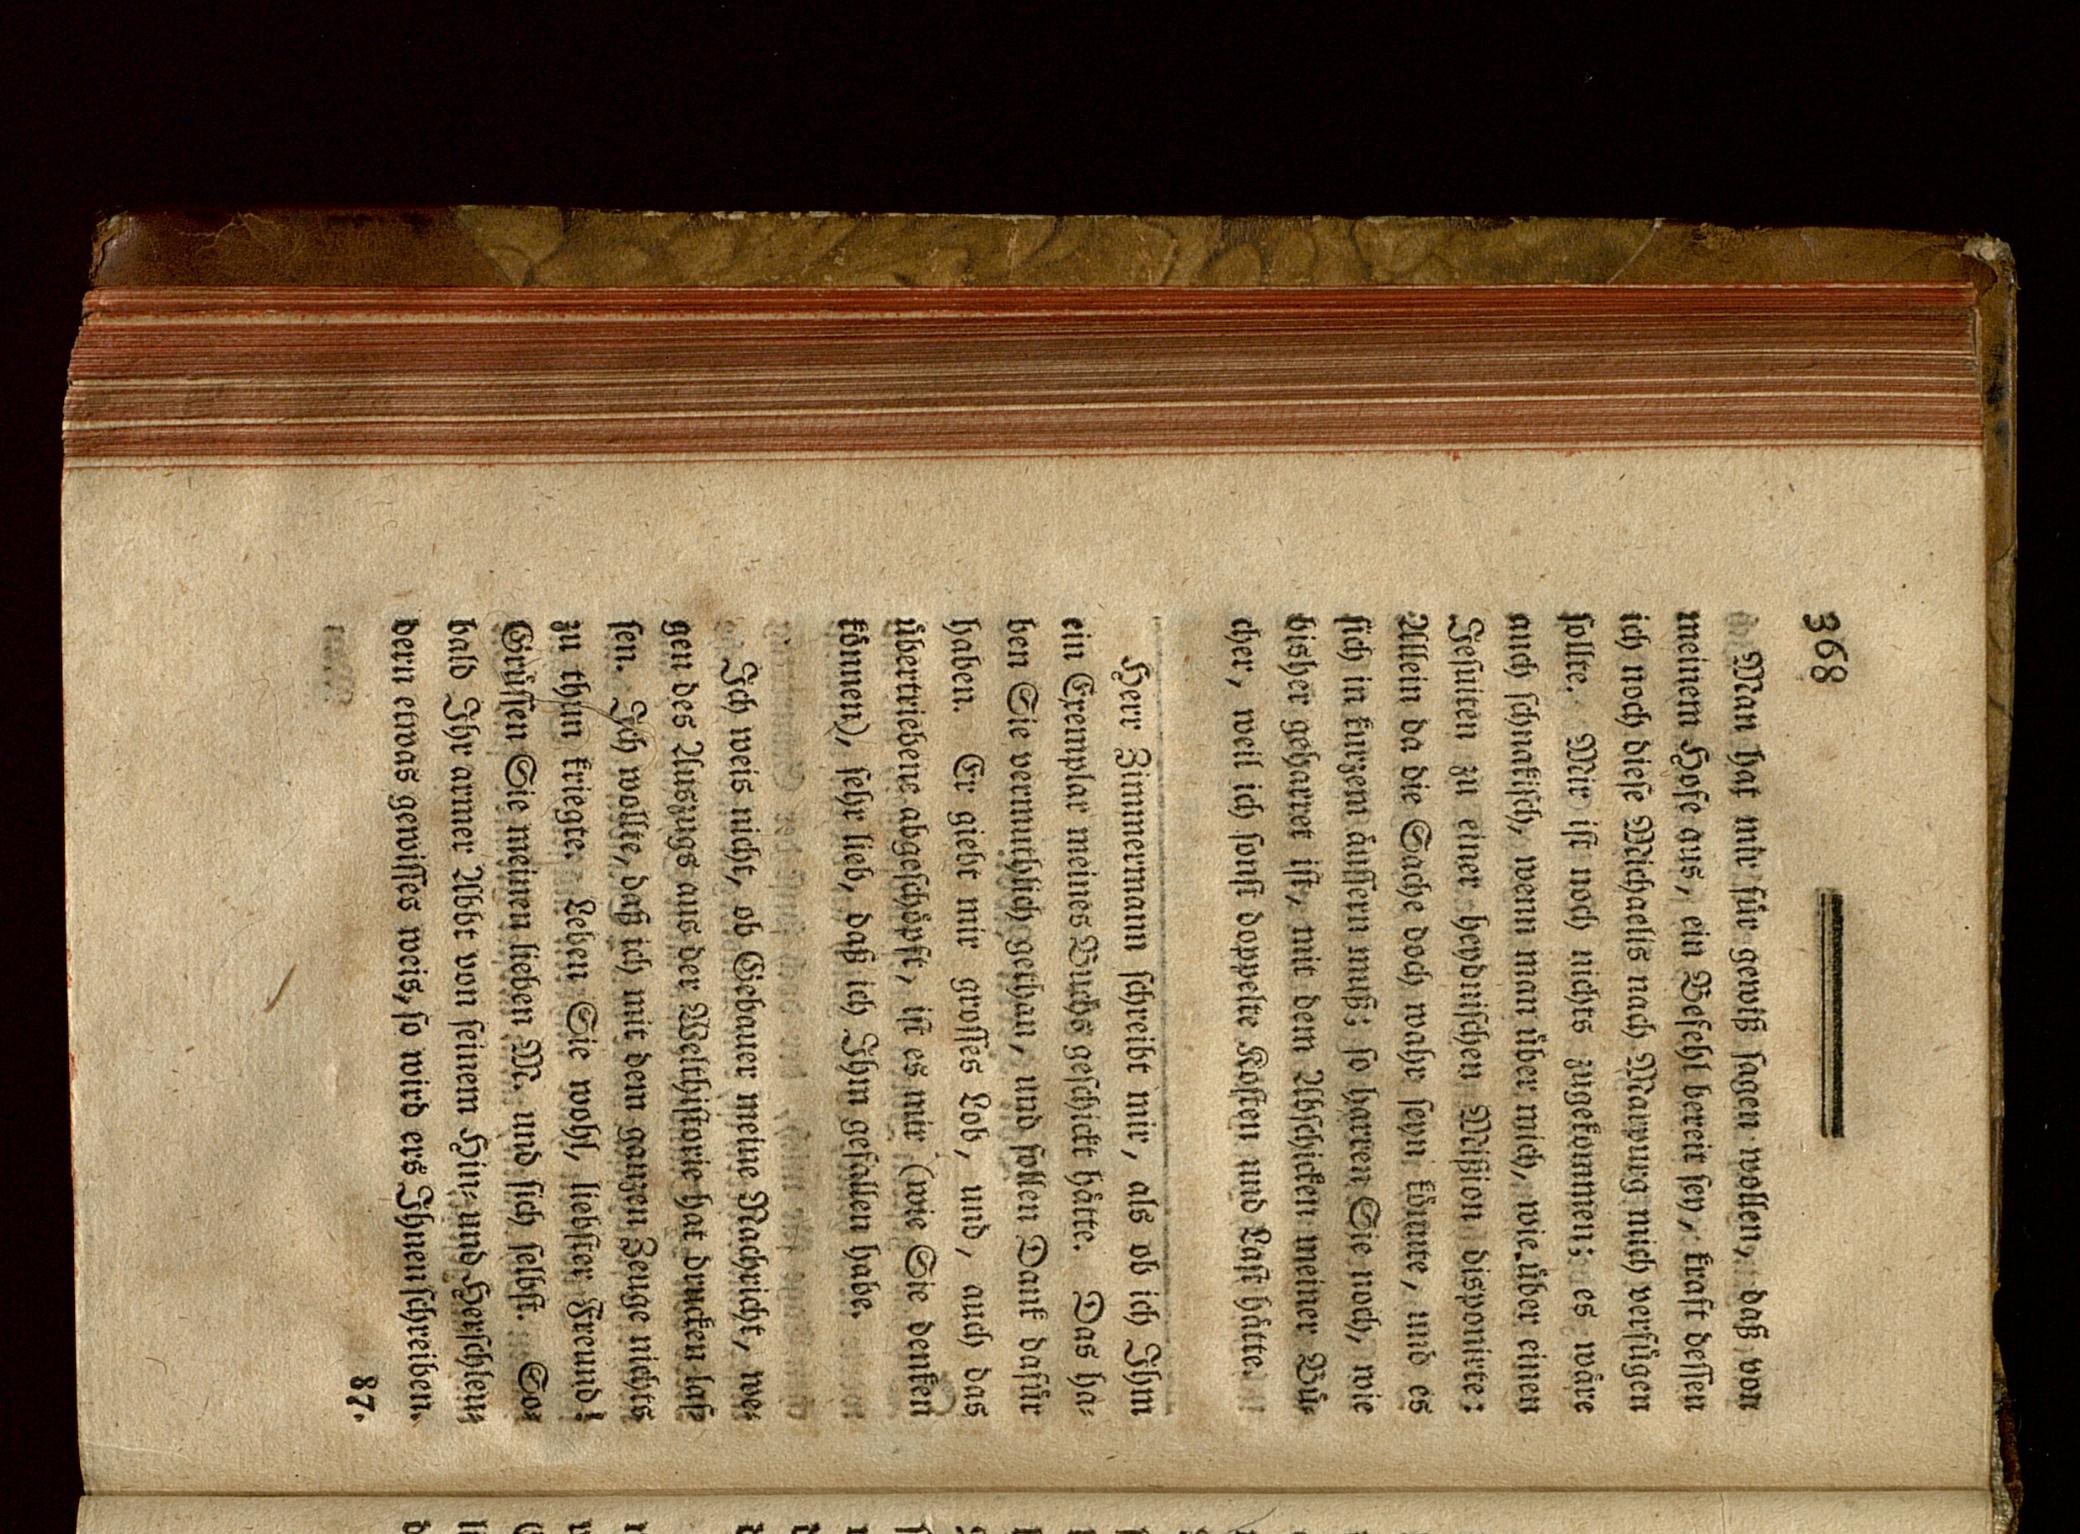 368
Man hat mir für gewiß sagen wollen, daß von
meinem Hofe aus, ein Befehl bereit sey, kraft dessen
ich noch diese Michaelis nach Warburg mich verfügen
sollte. Mir ist noch nichts zugekommen; es wäre
auch schnakisch, wenn man über mich, wie über einen
Jesuiten zu einer heydnischen Mißion disponirte:
Allein da die Sache doch wahr seyn könnte, und es
sich in kurzem äussern muß; so harren Sie noch, wie
bisher geharret ist, mit dem Abschicken meiner Bü-
cher, weil ich sonst doppelte Kosten und Last hätte.
Herr Zimmermann schreibt mir, als ob ich Ihm
ein Exemplar meines Buchs geschickt hätte. Das ha-
ben Sie vermuthlich gethan, und sollen Dank dafür
haben. Er giebt mir grosses Lob, und, auch das
übertriebene abgeschöpft, ist es mir (wie Sie denken
können), sehr lieb, daß ich Ihm gefallen habe.
Ich weis nicht, ob Gebauer meine Nachricht, we-
gen des Auszugs aus der Welthistorie hat drucken las-
sen. Ich wollte, daß ich mit dem ganzen Zeuge nichts
zu thun kriegte. Leben Sie wohl, liebster Freund!
Grüssen Sie meinen lieben M. und sich selbst. So-
bald Ihr armer Abbt von seinem Hin- und Herschleu-
dern etwas gewisses weis, so wird ers Ihnen schreiben.
87.